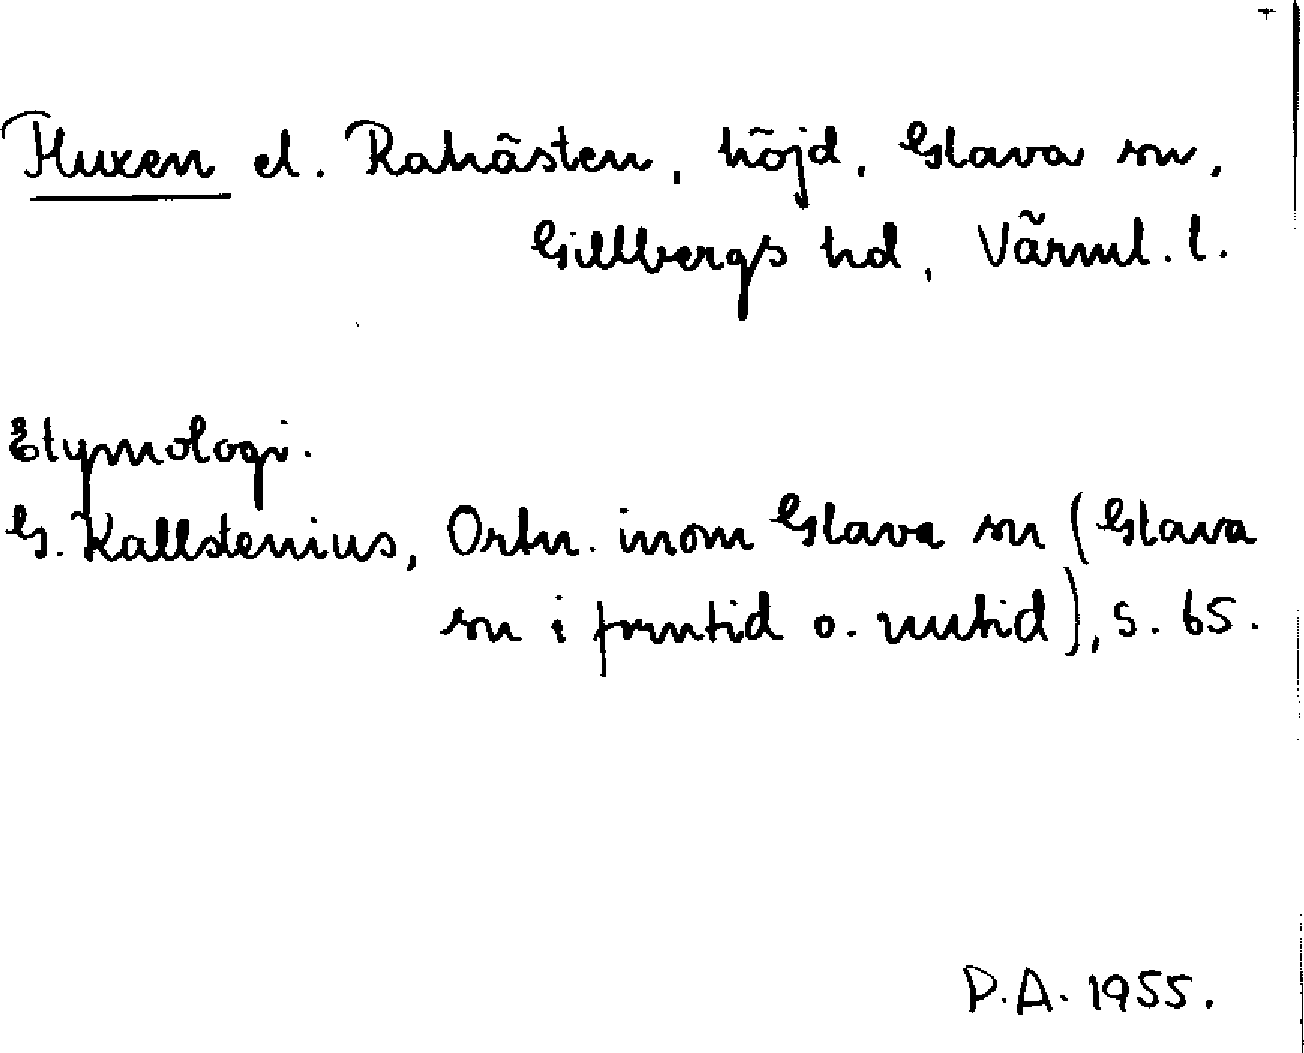 Huxen el. Rahästen, höjd, Glava sn,
Gillbergs hd, Värml. l.
Etymologi.
G. Kallstenius, Ortn. inom Glava sn (Glava
sn i forntid o. nutid), s. 65.
P.A. 1955.